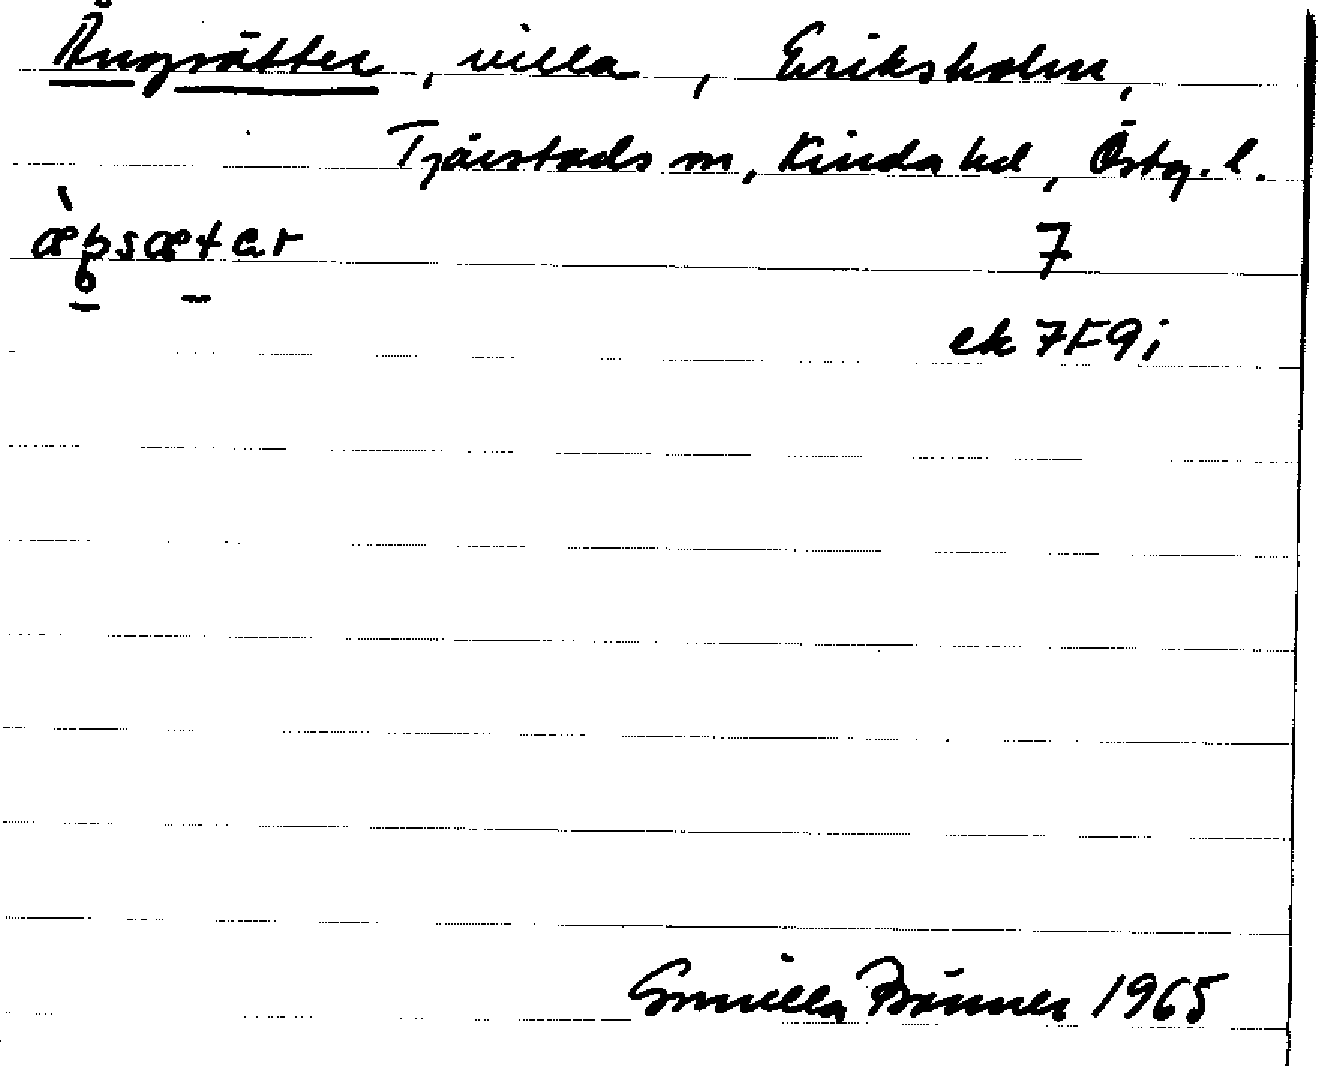 Ängsätter, villa, Eriksholm,
Tjärstads sn, Kinda hd, Östg. l.
7
ek 7F9i
Gunilla Bränner 1965